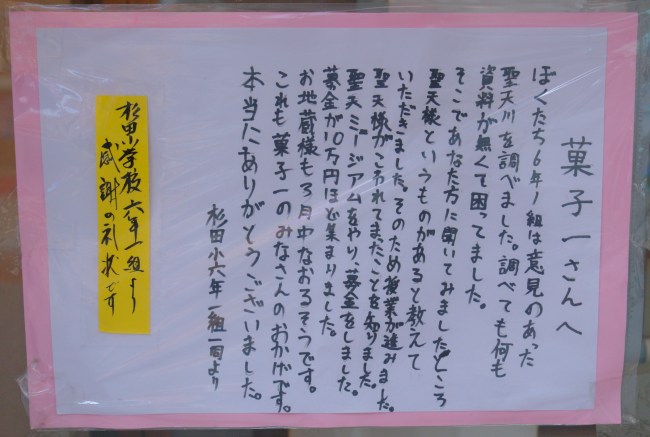 菓子一さんへ
ぼくたち6年1組は意見のあった
聖天川を調べました。調べても何も
資料が無くて困ってました。
そこであなた方に聞いてみましたところ
聖天様というものがあると教えて
いただきました。そのため授業が進みました。
聖天様がこわれてまったことを知りました。
聖天ミュージアムをやり、募金をしました。
募金が10万円ほど集まりました。
お地蔵様も3月中なおるそうです。
これも菓子一のみなさんのおかげです。
本当にありがとうございました。
杉田小六年一組一同より
杉田小学校六年一組より
感謝の礼状です